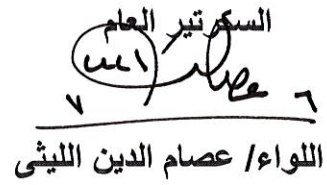 السكرتير العام
اللواء/ عصام الدين الليثى